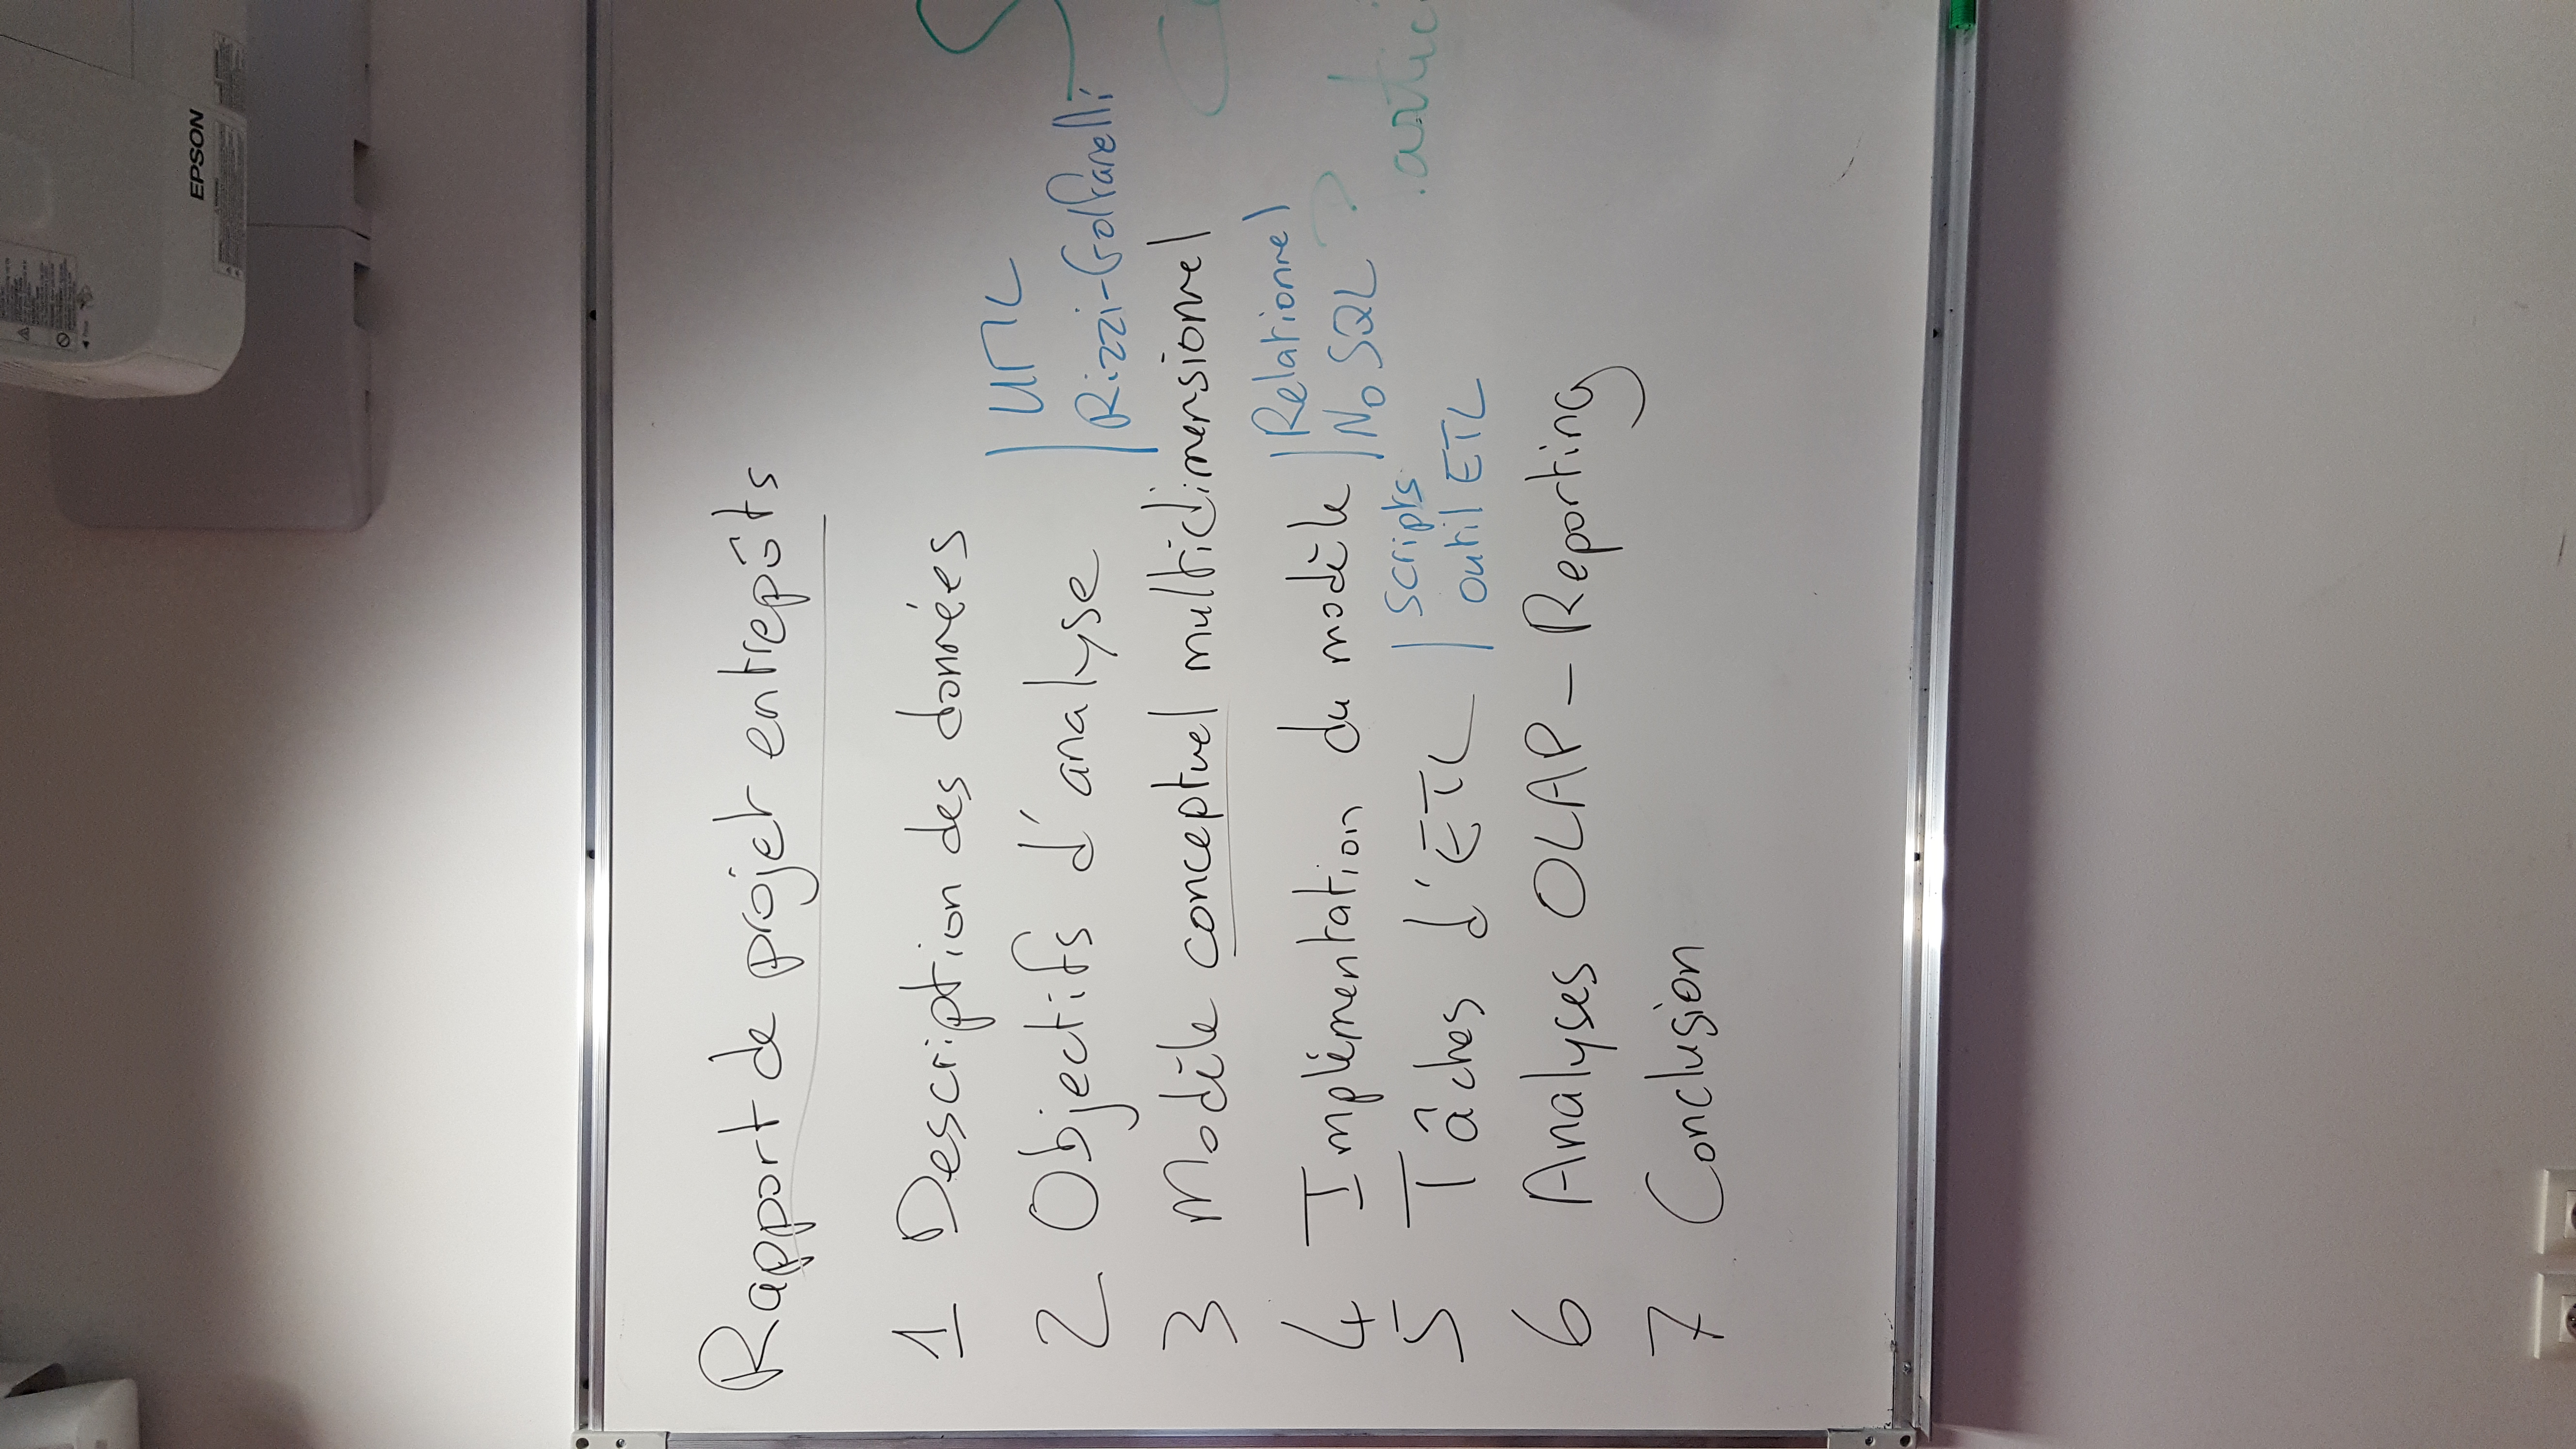 EPSON
Rapport de projet entrepôts
1 Description des données
2 Objectifs d'analyse
UML
Rizzi-Golfarelli
3 Modèle conceptuel multidimensionnel
4 Implémentation du modèle
Relationnel
NoSQL ?
5 Tâches d'ETL
scripts
outil ETL
6 Analyses OLAP - Reporting
7 Conclusion